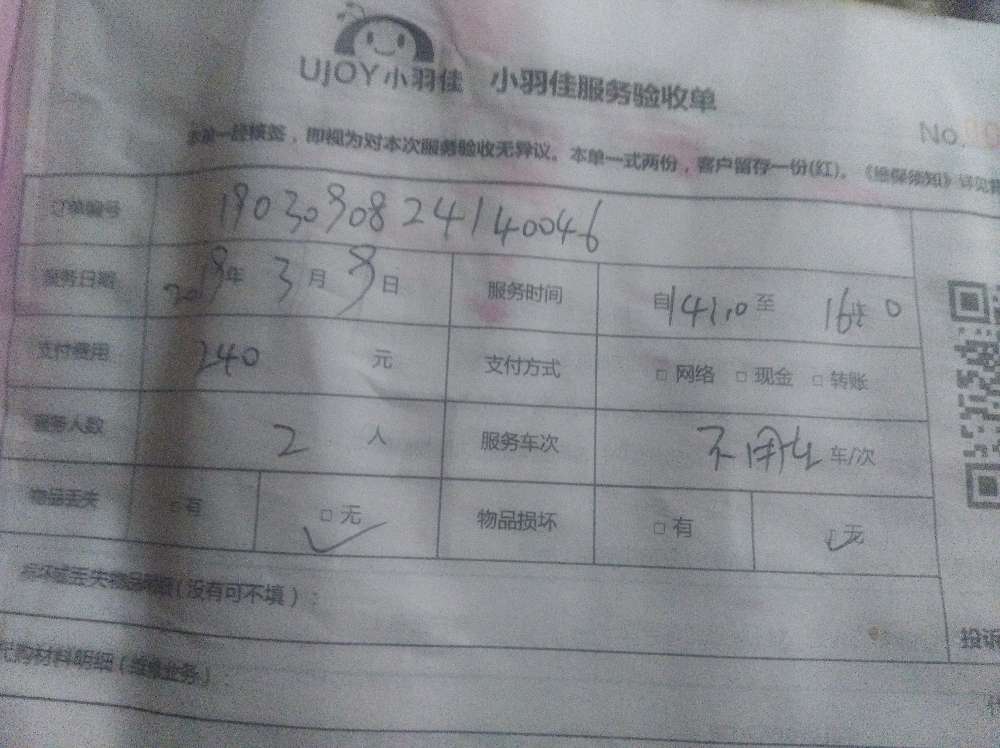 UJOY小羽佳 小羽佳服务验收单
No.
本单一经核签，即视为对本次服务验收无异议。本单一式两份，客户留存一份(红)。
订单编号 1903090824140046
服务日期 2019年 3月 9日 服务时间 自 至
支付费用 240 元 支付方式 □网络 □现金 □转账
服务人数 2 人 服务车次 不用车 车/次
物品丢失 □有 □无 物品损坏 □有 □无
损坏或丢失物品明细(没有可不填)：
代购材料明细(维修业务)：
投诉